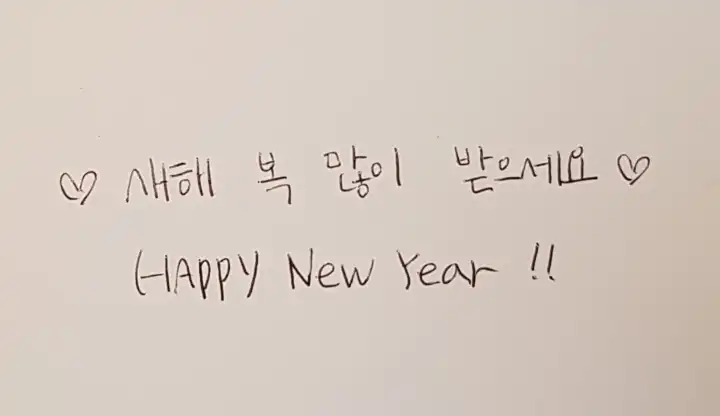 ♡ 새해 복 많이 받으세요 ♡
HAPPY New Year !!